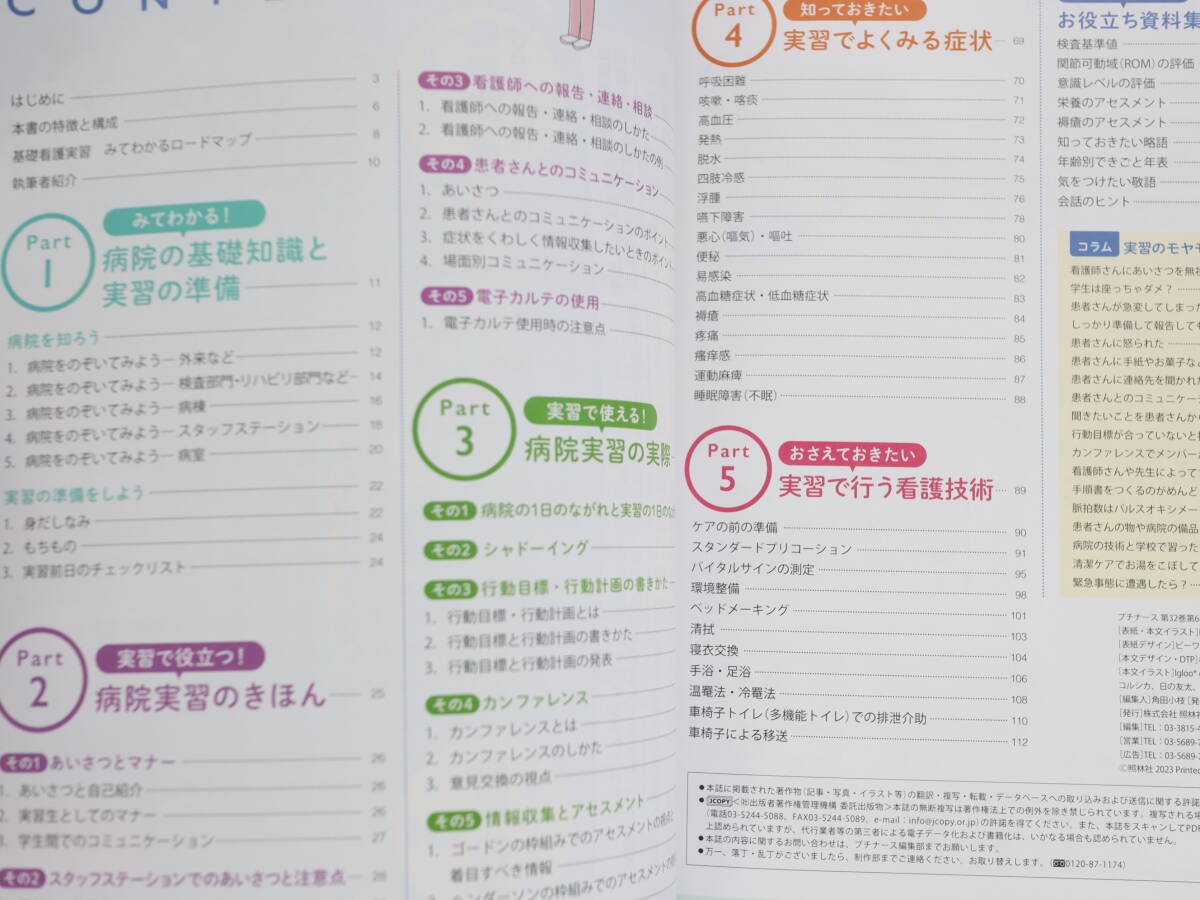 CONTE
はじめに 3
本書の特徴と構成 6
基礎看護実習 みてわかるロードマップ 8
執筆者紹介 10
Part 1
みてわかる!
病院の基礎知識と
実習の準備 11
病院を知ろう 12
1. 病院をのぞいてみよう―外来など 12
2. 病院をのぞいてみよう―検査部門・リハビリ部門など 14
3. 病院をのぞいてみよう―病棟 16
4. 病院をのぞいてみよう―スタッフステーション 18
5. 病院をのぞいてみよう―病室 20
実習の準備をしよう 22
1. 身だしなみ 22
2. もちもの 24
3. 実習前日のチェックリスト 24
Part 2
実習で役立つ!
病院実習のきほん 25
その1 あいさつとマナー 26
1. あいさつと自己紹介 26
2. 実習生としてのマナー 26
3. 学生間でのコミュニケーション 27
その2 スタッフステーションでのあいさつと注意点 28
その3 看護師への報告・連絡・相談
1. 看護師への報告・連絡・相談のしかた
2. 看護師への報告・連絡・相談のしかたの例
その4 患者さんとのコミュニケーション
1. あいさつ
2. 患者さんとのコミュニケーションのポイント
3. 症状をくわしく情報収集したいときのポイント
4. 場面別コミュニケーション
その5 電子カルテの使用
1. 電子カルテ使用時の注意点
Part 3
実習で使える!
病院実習の実際
その1 病院の1日のながれと実習の1日のなが
その2 シャドーイング
その3 行動目標・行動計画の書きかた
1. 行動目標・行動計画とは
2. 行動目標と行動計画の書きかた
3. 行動目標と行動計画の発表
その4 カンファレンス
1. カンファレンスとは
2. カンファレンスのしかた
3. 意見交換の視点
その5 情報収集とアセスメント
1. ゴードンの枠組みでのアセスメントの視点と
着目すべき情報
2. ヘンダーソンの枠組みでのアセスメントの
Part 4
知っておきたい
実習でよくみる症状 69
呼吸困難 70
咳嗽・喀痰 71
高血圧 72
発熱 73
脱水 74
四肢冷感 75
浮腫 76
嚥下障害 78
悪心(嘔気)・嘔吐 80
便秘 81
易感染 82
高血糖症状・低血糖症状 83
褥瘡 84
疼痛 85
瘙痒感 86
運動麻痺 87
睡眠障害(不眠) 88
Part 5
おさえておきたい
実習で行う看護技術 89
ケアの前の準備 90
スタンダードプリコーション 91
バイタルサインの測定 95
環境整備 98
ベッドメーキング 101
清拭 103
寝衣交換 104
手浴・足浴 106
温罨法・冷罨法 108
車椅子トイレ(多機能トイレ)での排泄介助 110
車椅子による移送 112
お役立ち資料集
検査基準値
関節可動域(ROM)の評価
意識レベルの評価
栄養のアセスメント
褥瘡のアセスメント
知っておきたい略語
年齢別できごと年表
気をつけたい敬語
会話のヒント
コラム 実習のモヤモ
看護師さんにあいさつを無視
学生は座っちゃダメ?
患者さんが急変してしまった
しっかり準備して報告しても
患者さんに怒られた
患者さんに手紙やお菓子な
患者さんに連絡先を聞かれた
患者さんとのコミュニケー
聞きたいことを患者さんから
行動目標が合っていないと
カンファレンスでメンバーが
看護師さんや先生によって
手順書をつくるのがめんど
脈拍数はパルスオキシメー
患者さんの物や病院の備品
病院の技術と学校で習った
清潔ケアでお湯をこぼして
緊急事態に遭遇したら?
プチナース 第32巻第6
[表紙・本文イラスト]
[表紙デザイン]ビーワ
[本文デザイン・DTP]
[本文イラスト]Igloo*
コルシカ、日の友太、
[編集人]角田小枝 [発
[発行]株式会社 照林
[編集]TEL:03-3815-4
[営業]TEL:03-5689-7
[広告]TEL:03-5689-7
©照林社 2023 Printed
●本誌に掲載された著作物(記事・写真・イラスト等)の翻訳・複写・転載・データベースへの取り込みおよび送信に関する許諾
●JCOPY<㈳出版者著作権管理機構 委託出版物>本誌の無断複写は著作権法上での例外を除き禁じられています。複写される場
(電話03-5244-5088、FAX03-5244-5089、e-mail:info@jcopy.or.jp)の許諾を得てください。また、本誌をスキャンしてPD
上認められていますが、代行業者等の第三者による電子データ化および書籍化は、いかなる場合も認められていません。
●本誌の内容に関するお問い合わせは、プチナース編集部までお願いします。
●万一、落丁・乱丁がございましたら、制作部までご連絡ください。お取り替えします。(0120-87-1174)